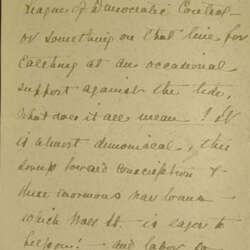 League of Democratic Control -
or something on that line for
catching at an occasional
support against the tide.
What does it all mean! It
is almost demoniacal, this
sweep toward conscription &
these enormous war loans
which Wall St. is eager to
- and labor